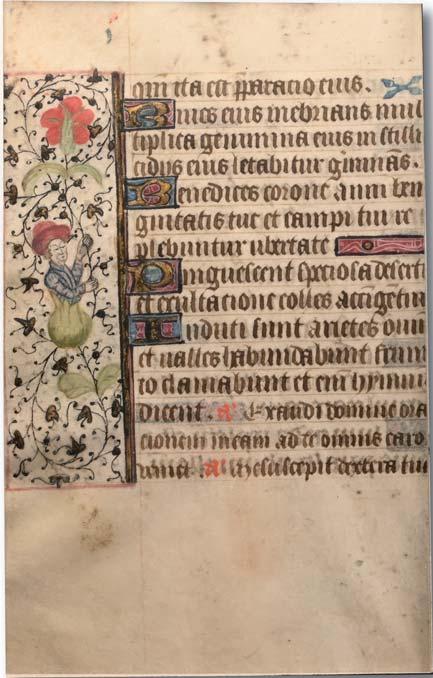 qm ita est pparacio eius.
Riuos eius inebrians mul
tiplica genimina eius in stilli
cidijs eius letabitur gminās.
Benedices corone anni ben
gnitatis tue et campi tui re
plebuntur ubertate
Pinguescent speciosa deserti
et exultacione colles accigetur
Induti sunt arietes oui
et ualles habundabunt frum
to clamabunt et em hymnu
dicent. a. Exaudi domine ora
cionem meam ad te omnis caro
ueniet a. Me suscepit dextera tua